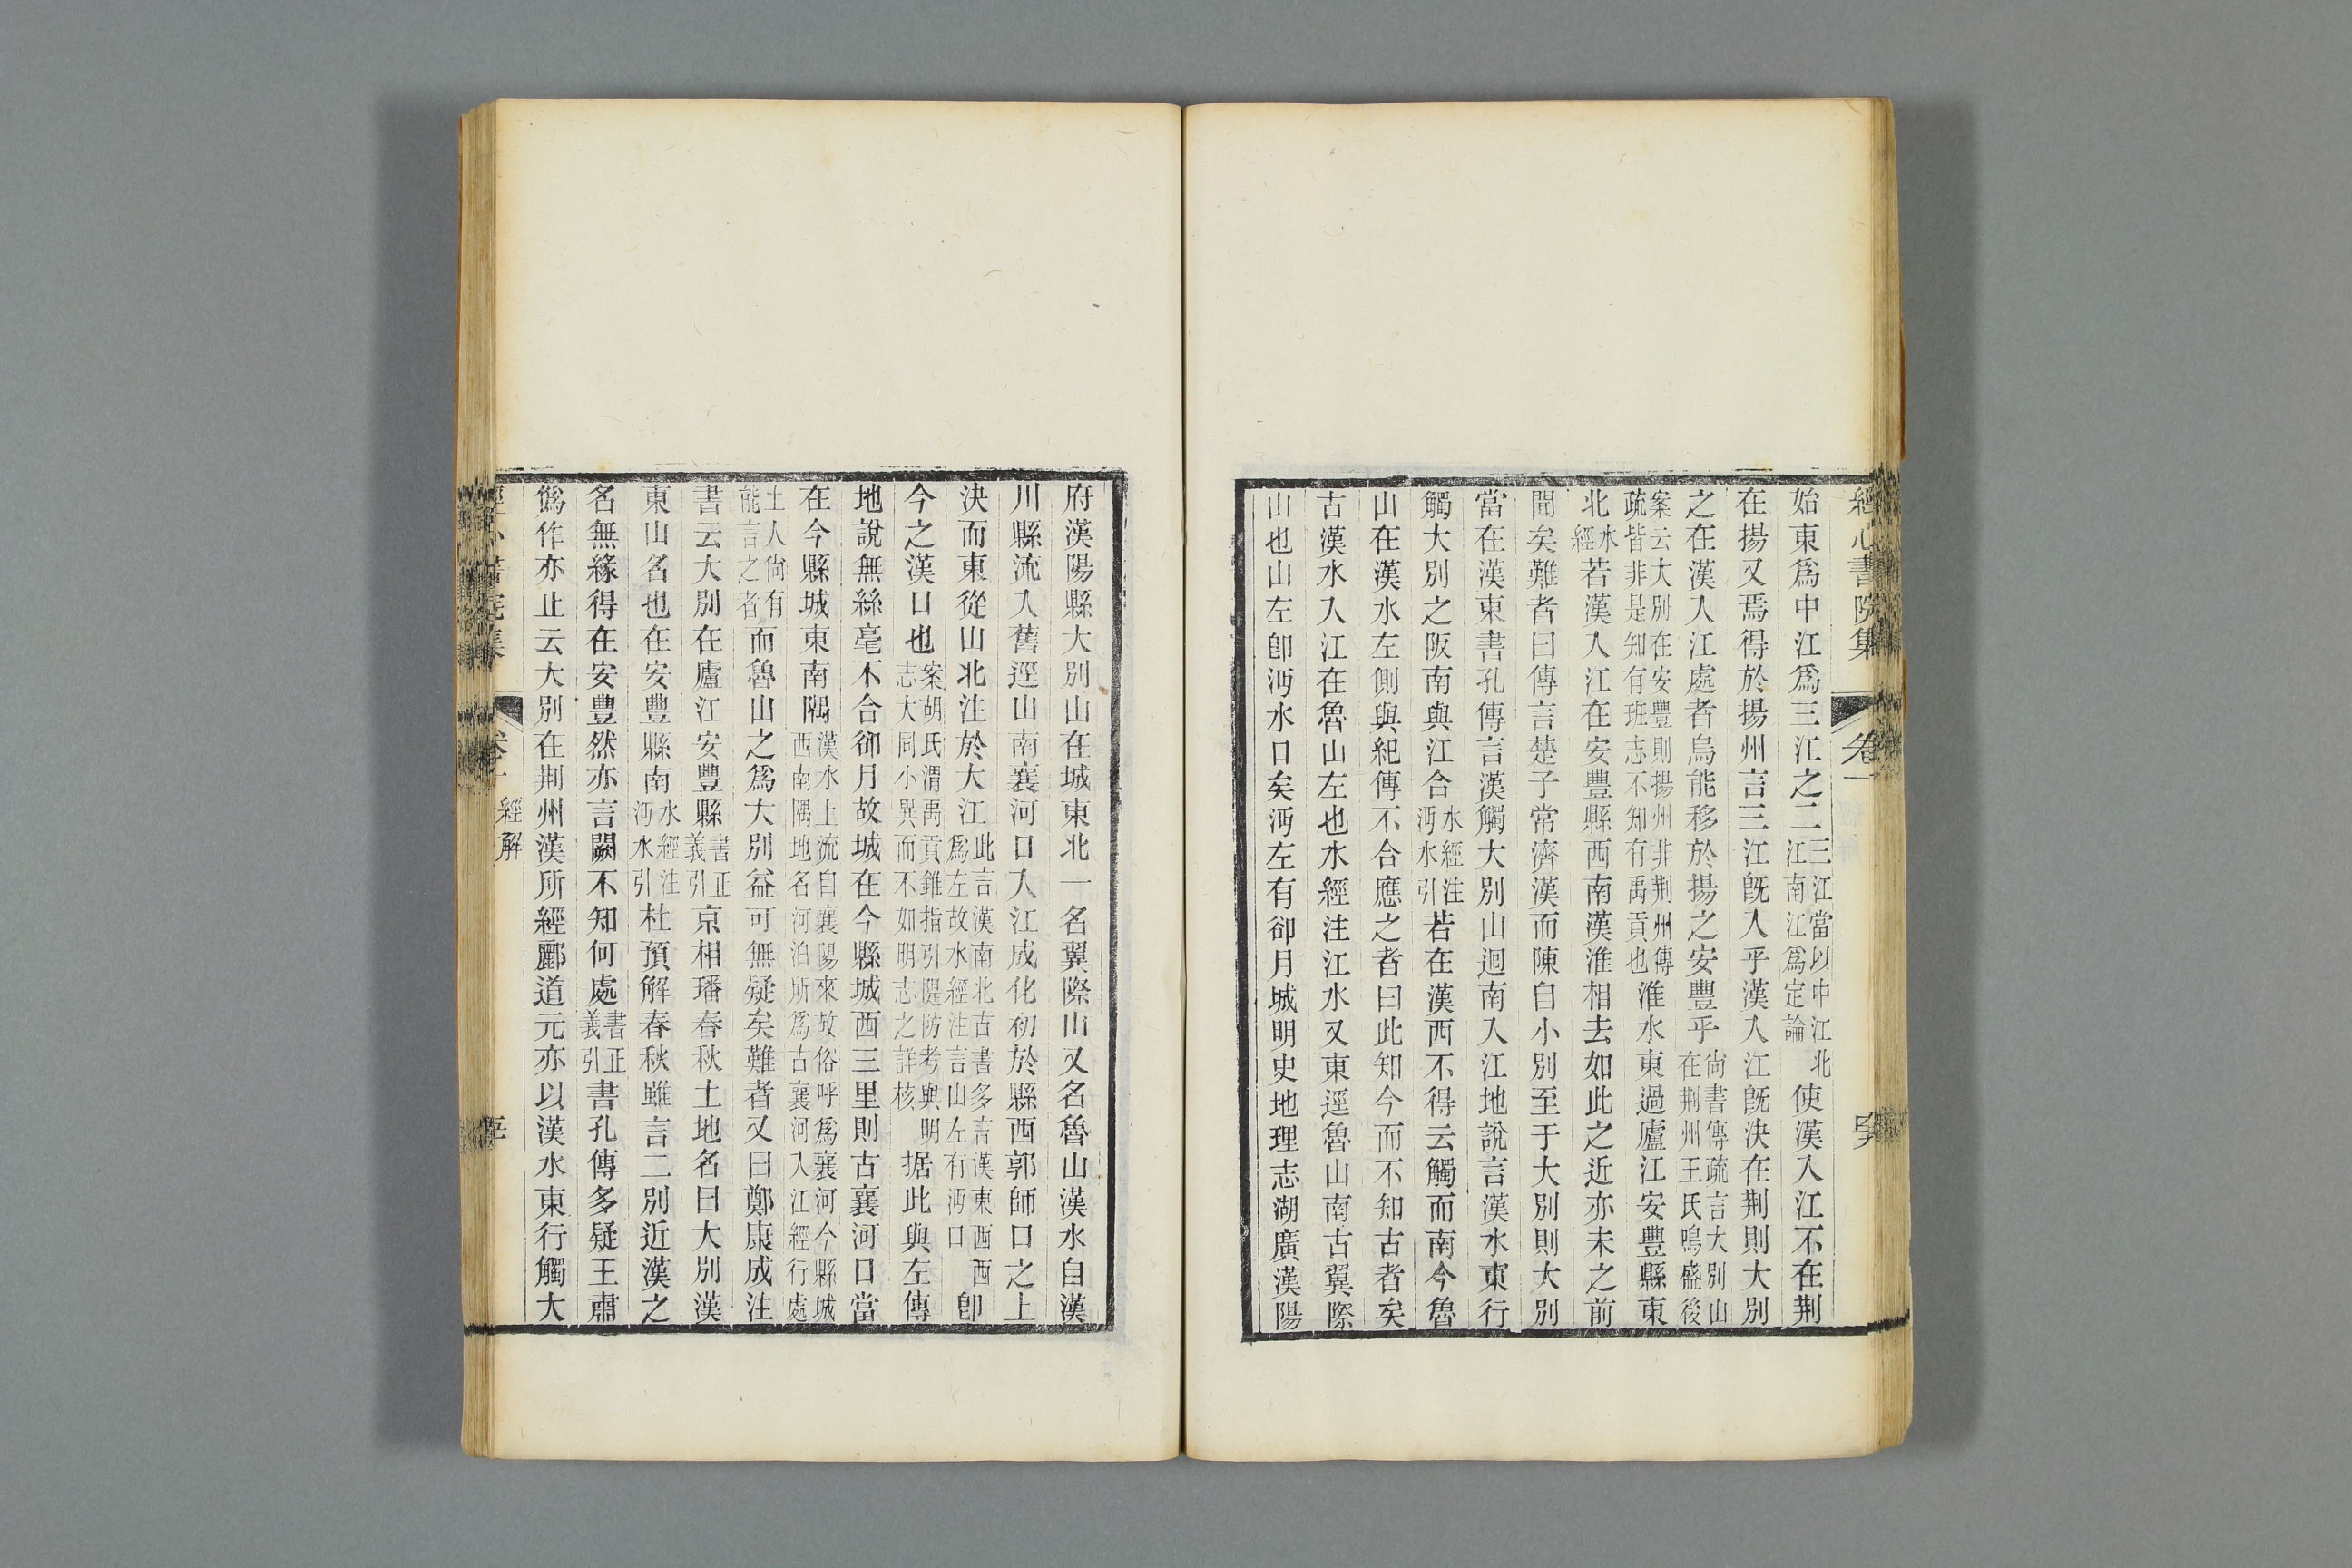 經心書院集 卷一
始東爲中江爲三江之二三江當以中江北江南江爲定論使漢入江不在荆
在揚又焉得於揚州言三江旣入乎漢入江旣決在荆則大別
之在漢入江處者烏能移於揚之安豐乎尙書傳疏言大別山在荆州王氏鳴盛後
案云大別在安豐則揚州非荆州傳疏皆非是知有班志不知有禹貢也淮水東過廬江安豐縣東
北水經若漢入江在安豐縣西南漢淮相去如此之近亦未之前
聞矣難者曰傳言楚子常濟漢而陳自小別至于大別則大別
當在漢東書孔傳言漢觸大別山迴南入江地說言漢水東行
觸大別之阪南與江合水經注沔水引若在漢西不得云觸而南今魯
山在漢水左側與紀傳不合應之者曰此知今而不知古者矣
古漢水入江在魯山左也水經注江水又東逕魯山南古翼際
山也山左卽沔水口矣沔左有卻月城明史地理志湖廣漢陽
府漢陽縣大別山在城東北一名翼際山又名魯山漢水自漢
川縣流入舊逕山南襄河口入江成化初於縣西郭師口之上
決而東從山北注於大江此言漢南北古書多言漢東西西爲左故水經注言山左有沔口卽
今之漢口也案胡氏渭禹貢錐指引隄防考與明志大同小異而不如明志之詳核据此與左傳
地說無絲毫不合卻月故城在今縣城西三里則古襄河口當
在今縣城東南隅漢水上流自襄陽來故俗呼爲襄河今縣城西南隅地名河泊所爲古襄河入江經行處
土人尙有能言之者而魯山之爲大別益可無疑矣難者又曰鄭康成注
書云大別在廬江安豐縣書正義引京相璠春秋土地名曰大別漢
東山名也在安豐縣南水經注沔水引杜預解春秋雖言二別近漢之
名無緣得在安豐然亦言闕不知何處書正義引書孔傳多疑王肅
僞作亦止云大別在荆州漢所經酈道元亦以漢水東行觸大
卷一 經解